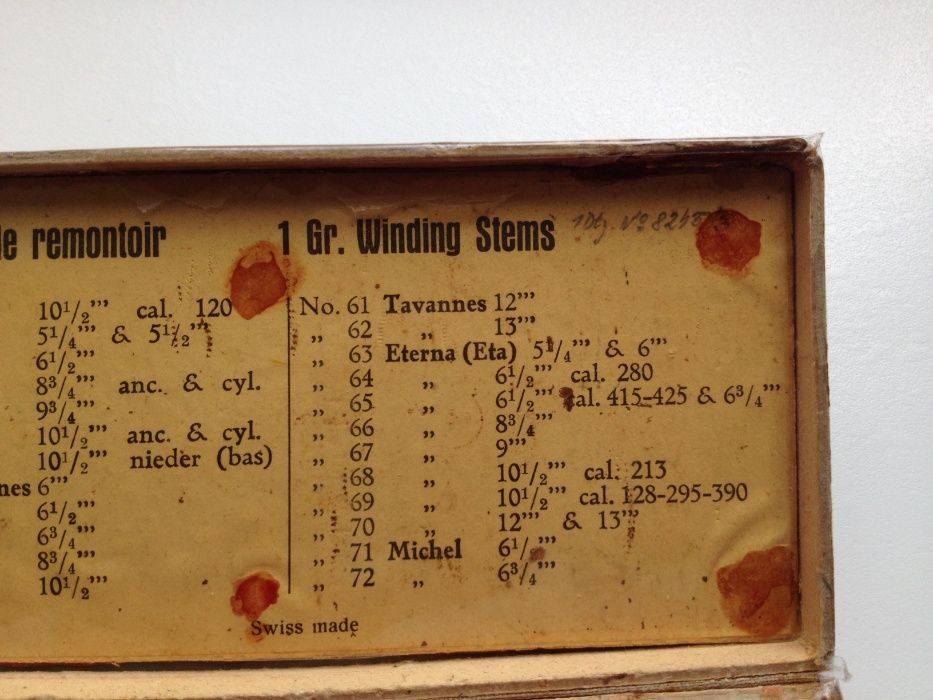 le remontoir
1 Gr. Winding Stems
10½''' cal. 120
5¼''' & 5½'''
6½'''
8¾''' anc. & cyl.
9¾'''
10½''' anc. & cyl.
10½''' nieder (bas)
nes 6'''
6½'''
6¾'''
8¾'''
10½'''
No. 61 Tavannes 12'''
„ 62 „ 13'''
„ 63 Eterna (Eta) 5¼''' & 6'''
„ 64 „ 6½''' cal. 280
„ 65 „ 6½''' cal. 415-425 & 6¾'''
„ 66 „ 8¾'''
„ 67 „ 9'''
„ 68 „ 10½''' cal. 213
„ 69 „ 10½''' cal. 128-295-390
„ 70 „ 12''' & 13'''
„ 71 Michel 6½'''
„ 72 „ 6¾'''
Swiss made